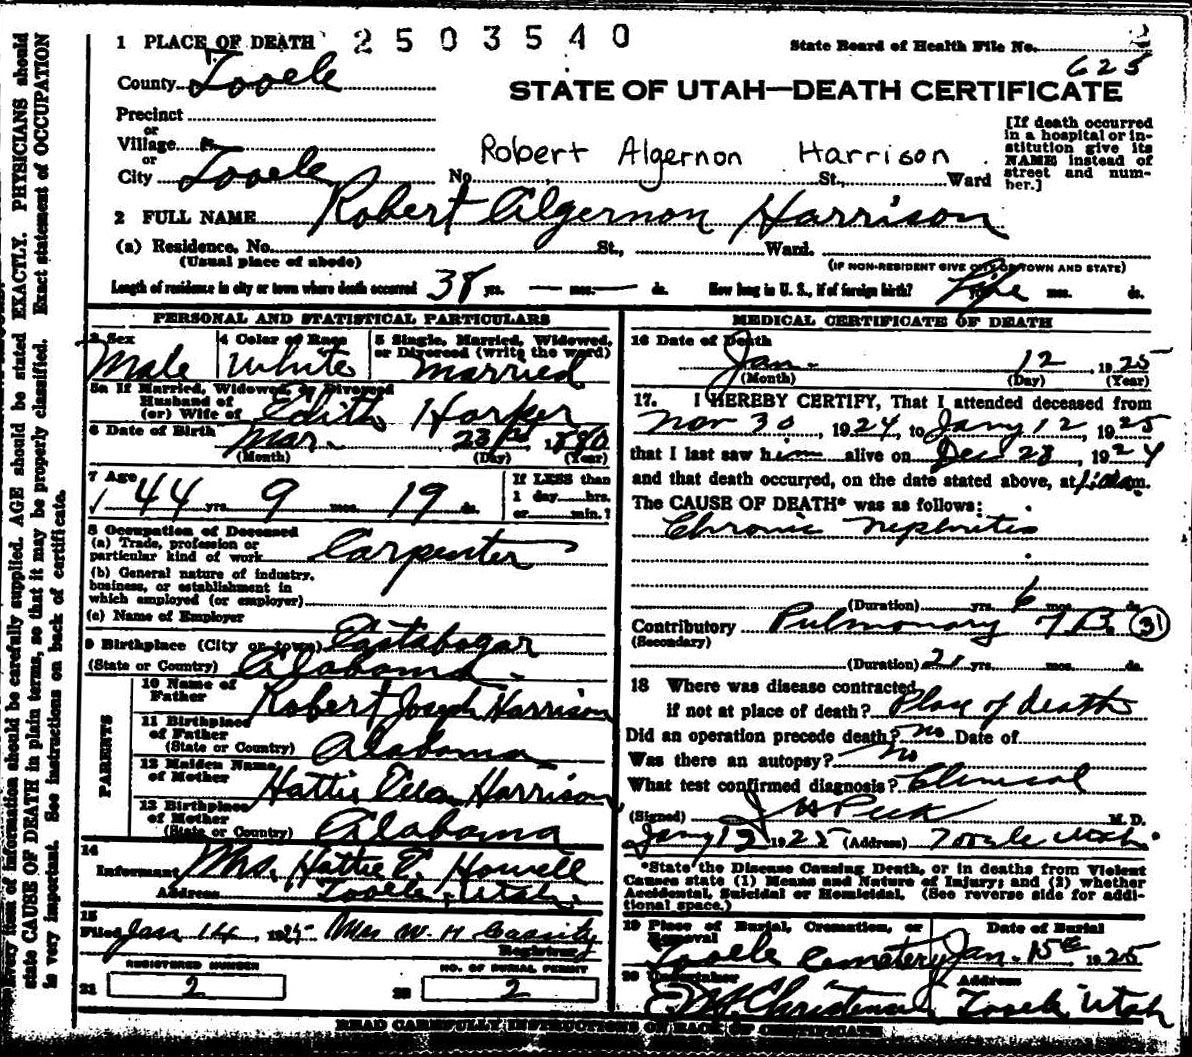 1 PLACE OF DEATH 2503540
State Board of Health File No. 2
625
County Tooele
STATE OF UTAH—DEATH CERTIFICATE
Precinct
or
Village
or
City Tooele No. St., Ward
Robert Algernon Harrison
[If death occurred in a hospital or institution give its NAME instead of street and number.]
2 FULL NAME Robert Algernon Harrison
(a) Residence. No. St., Ward.
(Usual place of abode)
(IF NON-RESIDENT GIVE CITY OR TOWN AND STATE)
Length of residence in city or town where death occurred 38 yrs. — mos. — ds. How long in U. S., if of foreign birth? Life yrs. mos. ds.
PERSONAL AND STATISTICAL PARTICULARS
3 Sex
Male
4 Color or Race
White
5 Single, Married, Widowed, or Divorced (write the word)
Married
5a If Married, Widowed, or Divorced
Husband of
(or) Wife of Edith Harker
6 Date of Birth Mar. 23rd 1880
(Month) (Day) (Year)
7 Age
44 yrs. 9 mos. 19 ds.
If LESS than
1 day hrs.
or min.?
8 Occupation of Deceased
(a) Trade, profession or
particular kind of work Carpenter
(b) General nature of industry,
business, or establishment in
which employed (or employer)
(c) Name of Employer
9 Birthplace (City or town) Eastabogar
(State or Country) Alabama
PARENTS
10 Name of
Father Robert Joseph Harrison
11 Birthplace
of Father
(State or Country) Alabama
12 Maiden Name
of Mother Hattie Ellen Harrison
13 Birthplace
of Mother
(State or Country) Alabama
14
Informant Mrs. Hattie E. Howell
Address Tooele, Utah.
15
Filed Jan 14, 1925 Mrs W. H Cassity
Registrar
REGISTERED NUMBER
21 2
NO. OF BURIAL PERMIT
22 2
MEDICAL CERTIFICATE OF DEATH
16 Date of Death
Jan. 12, 1925
(Month) (Day) (Year)
17. I HEREBY CERTIFY, That I attended deceased from
Nov 30, 1924, to Jany 12, 1925
that I last saw him alive on Dec 28, 1924
and that death occurred, on the date stated above, at m.
The CAUSE OF DEATH* was as follows:
Chronic Nephritis
(Duration) yrs. 6 mos. ds.
Contributory Pulmonary T B. 31
(Secondary)
(Duration) 21 yrs. mos. ds.
18 Where was disease contracted
if not at place of death? Place of death
Did an operation precede death? no Date of
Was there an autopsy? No
What test confirmed diagnosis? Clinical
(Signed) J H Peck M. D.
Jany 13 1925 (Address) Tooele Utah.
*State the Disease Causing Death, or in deaths from Violent
Causes state (1) Means and Nature of Injury; and (2) whether
Accidental, Suicidal or Homicidal. (See reverse side for addi-
tional space.)
19 Place of Burial, Cremation, or
Removal
Tooele Cemetery
Date of Burial
Jan. 15th 1925
20 Undertaker
Address
Tooele Utah
READ CAREFULLY INSTRUCTIONS ON BACK OF CERTIFICATE
Every item of information should be carefully supplied. AGE should be stated EXACTLY. PHYSICIANS should
state CAUSE OF DEATH in plain terms, so that it may be properly classified. Exact statement of OCCUPATION
is very important. See instructions on back of certificate.